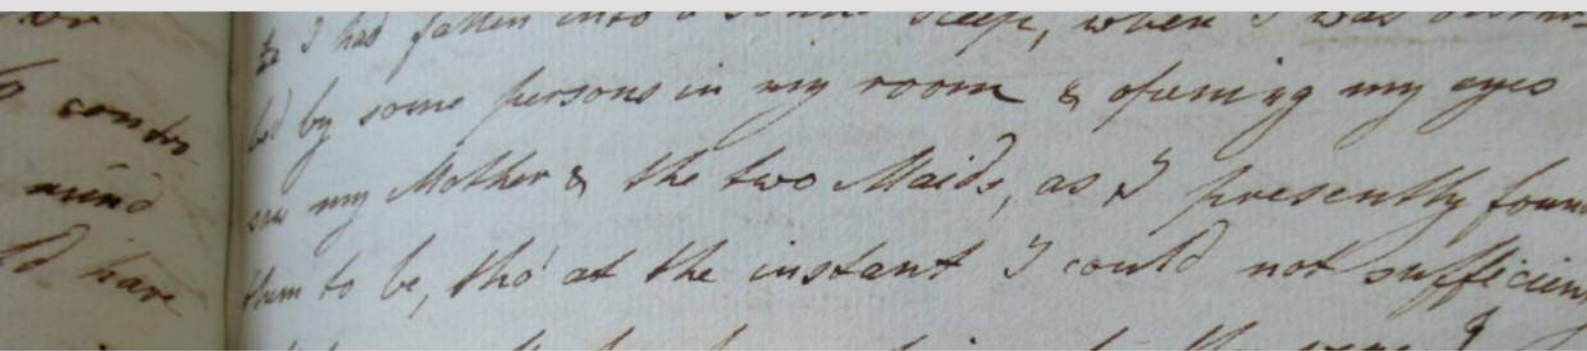 or
contri
mind
ld have
I had fallen into a sound sleep, when I was distur-
bed by some persons in my room & opening my eyes
saw my Mother & the two Maids, as I presently foun
them to be, tho' at the instant I could not sufficien